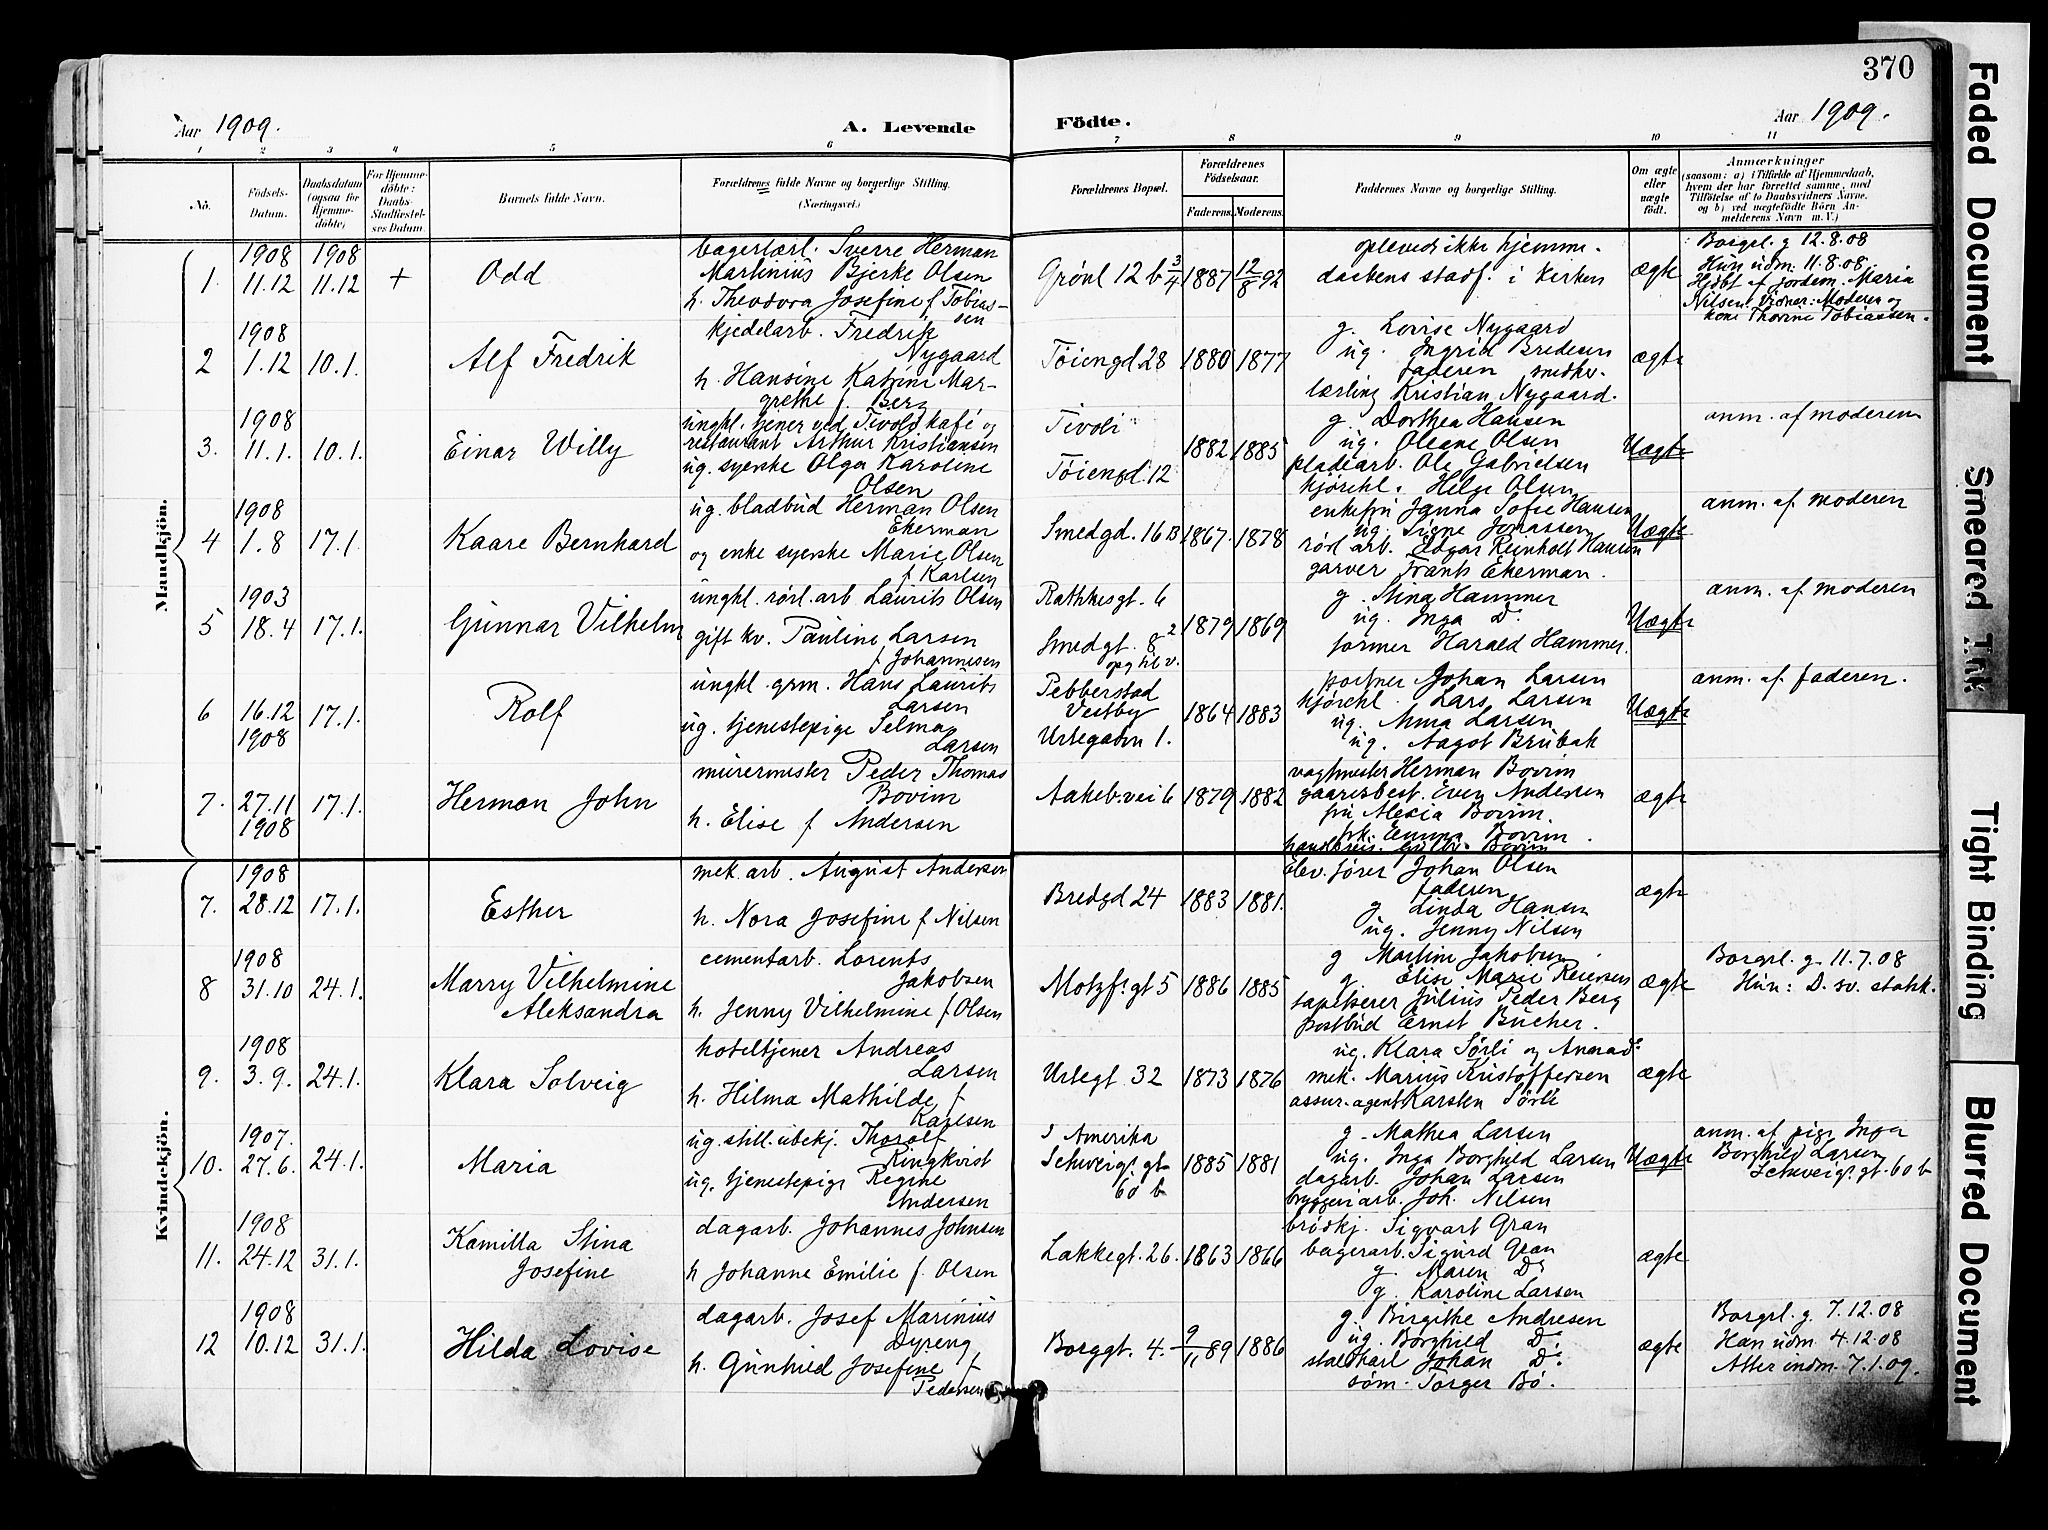 370
Aar 1909.
A. Levende
Födte.
Aar 1909.
1 2 3 4 5 6 7 8 9 10 11
No.
Födsels-
Datum.
Daabsdatum
(ogsaa for
Hjemme-
döbte)
For Hjemme-
döbte:
Daabs-
Stadfæstel-
ses Datum.
Barnets fulde Navn.
Forældrenes fulde Navne og borgerlige Stilling.
(Næringsvei.)
Forældrenes Bopæl.
Forældrenes
Födselsaar.
Faderens. Moderens.
Faddernes Navne og borgerlige Stilling.
Om ægte
eller
uægte
født.
Anmærkninger
(saasom: a) i Tilfælde af Hjemmedaab,
hvem der har forrettet samme, med
Tilföielse af to Daabsvidners Navne,
og b) ved uægtefödte Börn An-
melderens Navn m. V.)
Mandkjön.
1.
1908
11.12
1908
11.12
+
Odd
bagerlærl. Sverre Herman
Martinius Bjerke Olsen
h. Theodora Josefine f Tobias-
sen
Grönl 12 b 3/4
1887
12/8 92
oplevedikke hjemme-
daabens stadf. i kirken
ægte
Borgrl. g 12.8.08
Hun udm. 11.8.08.
Hjdbt af jordem. Maria
Nilsen. Vidner: Moderen og
kone Thorine Tobiassen.
2
1908
1.12
10.1.
Alf Fredrik
kjedelarb. Fredrik
Nygaard
h. Hansine Katrine Mar-
grethe f. Berg
Töiengd 28
1880
1877
g. Lovise Nygaard
ug. Ingrid Bredesen
faderen smedkv-
lærling Kristian Nygaard.
ægte
3.
1908
11.1.
10.1.
Einar Willy
ungkl. tjener ved Tivoli kafé og
restaurant Arthur Kristiansen
ug. syerske Olga Karoline
Olsen
Tivoli
Töiengd. 12
1882
1885
g. Dorthea Hansen
ug. Oleane Olsen
pladearb. Ole Gabrielsen
kjörekl. Helge Olsen
Uægte
anm. af moderen
4
1908
1.8
17.1.
Kaare Bernhard
ug. bladbud Herman Olsen
Ekerman
og enke syerske Marie Olsen
f Karlsen
Smedgd. 16 B
1867.
1878
enkefru Janna Sofie Hansen
ug. Signe Jonassen
rörl arb. Edgar Reinholt Hansen
garver Frants Ekerman.
Uægte
anm. af moderen
5
1903
18.4
17.1.
Gunnar Vilhelm
ungkl. rörl. arb Laurits Olsen
gift kv. Pauline Larsen
f Johannesen
Rathkesgt. 6
Smedgt. 8
1879
1869
g. Stina Hammer
ug. Inga D.
former Harald Hammer.
Uægte
anm. af moderen
6
16.12
1908
17.1.
Rolf
ungkl. grm. Hans Laurits
Larsen
ug. tjenestepige Selma
Larsen
Pebberstad
Vestby
Urtegaden 1.
1864
1883
portner Johan Larsen
kjörekl. Lars Larsen
ug. Anna Larsen
ug. Aagot Brubak
Uægte
anm. af faderen.
7.
27.11
1908
17.1.
Herman John
murermester Peder Thomas
Bovim
h. Elise f Andersen
Aakeb.vei 6
1879
1882
vagtmester Herman Bovim
gaardsbest. Even Andersen
fru Alexia Bovim.
frk. Emma Bovim.
ægte
Kvindekjön.
7.
1908
28.12
17.1.
Esther
mek. arb. August Andersen
h. Nora Josefine f Nilsen
Bredgd 24
1883
1881.
Elev. förer Johan Olsen
faderen
g Linda Hansen
ug. Jenny Nilsen
ægte
8
1908
31.10
24.1.
Marry Vilhelmine
Aleksandra
cementarb. Lorents
Jakobsen
h. Jenny Vilhelmine f Olsen
Motzf. gt 5
1886
1885
g Martine Jakobsen
g. Elise Marie
tapetserer Julius Peder Berg
postbud Ernst Bücher.
ægte
Borgrl. g. 11.7.08
Hun: D. sv. statsk.
9.
1908
3.9.
24.1.
Klara Solveig
hoteltjener Andreas
Larsen
h. Hilma Mathilde f
Karlsen
Urtegt. 32
1873
1876
ug. Klara Sörli og Anna D:
mek. Marius Kristoffersen
assur.agent Karsten Sörli
ægte
10.
1907.
27.6.
24.1.
Maria
ug. still. ubekj. Thorolf
Ringkvist
ug. tjenestepige Regine
Andersen
I Amerika
Schweigs. gt
60 b
1885
1881
g. Mathea Larsen
ug. Inga Borghild Larsen
dagarb. Johan Larsen
bryggeriarb. Joh. Nilsen
Uægte
anm. af pige Inga
Borghild Larsen
Schweigs. gt. 60 b
11.
1908
24.12
31.1.
Kamilla Stina
Josefine
dagarb. Johannes Johnsen
h Johanne Emilie f. Olsen
Lakkegt. 26.
1863
1866
brödkj. Sigvart Gran
bagerarb. Sigurd Gran
g. Maren D:
g. Karoline Larsen
ægte
12
1908
10.12
31.1.
Hilda Lovise
dagarb. Josef Marinius
Dyreng
h. Gunhild Josefine f
Pedersen
Borggt. 4.
9/11 89
1886
g. Birgithe Andresen
ug. Borghild D:
staldkarl Johan D:
söm. Torger Bö.
ægte
Borgrl. g. 7.12.08
Han udm. 4.12.08
Atter indm. 7.1.09.
Faded Document
Smeared Ink
Tight Binding
Blurred Document